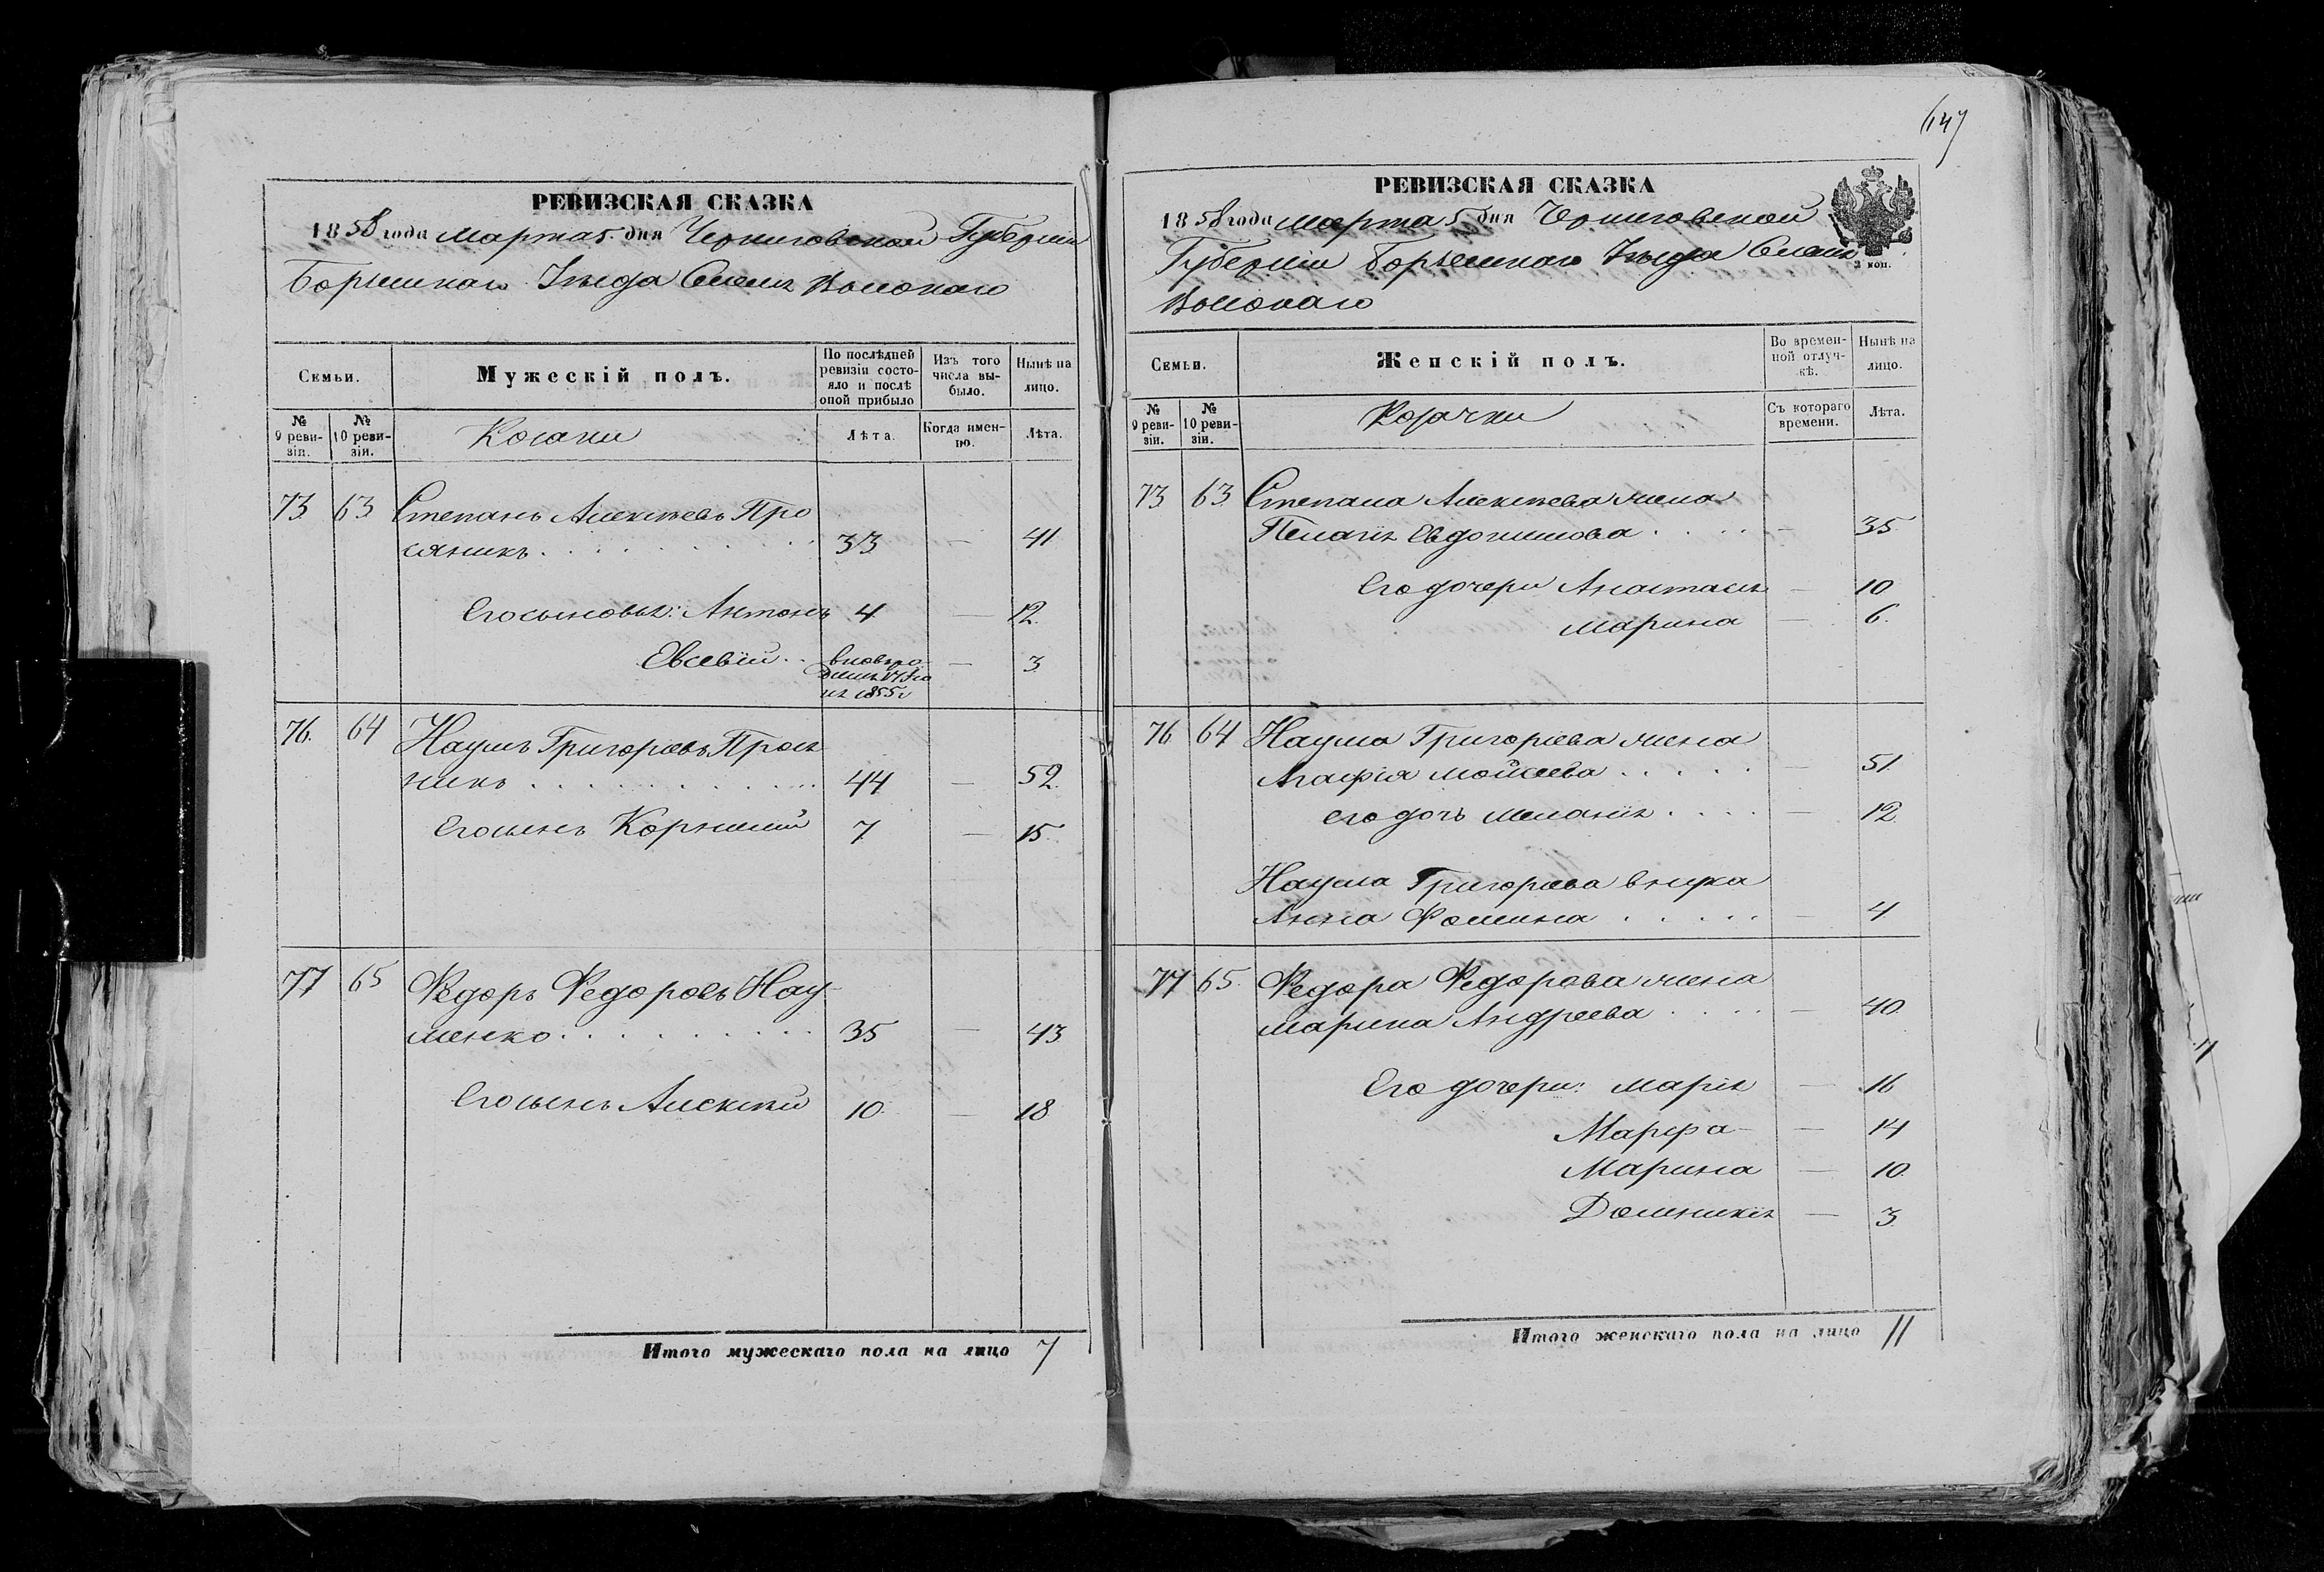 РЕВИЗСКАЯ СКАЗКА
1858 года Марта 5 дня Черниговской Губернии
Уезда
Семьи.
Мужескій полъ.
По послѣдней ревизіи состояло и послѣ оной прибыло
Изъ того числа выбыло.
Нынѣ на лицо.
№ 9 ревизіи.
№ 10 ревизіи.
Козаки
Лѣта.
Когда именно.
Лѣта.
73 63 Степанъ Алексѣевъ Про
сяникъ . . . . . . . . . 33 — 41
Его сыновья: Антонъ 4 — 12.
Евсевій . . вновьро — 3
1855
76. 64 Наумъ Григорьевъ Прося
никъ . . . . . . . . . . 44 — 52.
Его сынъ Корнилий 7 — 15.
77 65 Федоръ Федоровъ Нау-
менко . . . . . . . . . 35 — 43
Его сынъ Алексѣй 10. — 18
Итого мужескаго пола на лицо 7
147
РЕВИЗСКАЯ СКАЗКА
1858 года Марта 5 дня Черниговской
Губернии Уезда
2 коп.
Семьи.
Женскій полъ.
Во временной отлучкѣ.
Нынѣ на лицо.
№ 9 ревизіи.
№ 10 ревизіи.
Козачки
Съ котораго времени.
Лѣта.
73 63 Степана Алексѣева жена
Пелагія Евдокимова . . . . — 35.
Его дочери Анастасія — 10
Марина — 6.
76 64 Наума Григорьева жена
Агафія Мойсеева . . . . . — 51.
его дочь Меланія . . . . — 12.
Наума Григорьева внука
Анна Фомина . . . . . — 4
77 65. Федора Федорова жена
Марина Андреева . . . . — 40.
Его дочери: Марія — 16
Марфа — 14
Марина — 10.
Домникія — 3
Итого женскаго пола на лицо 11